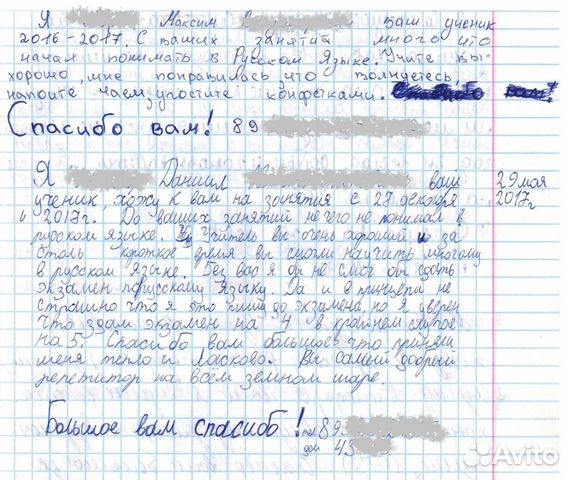 Я Максим ваш ученик
2016-2017. С ваших занятий много что
начал понимать в Русском Языке. Учите вы
хорошо, мне понравилась, что волнуетесь,
напоите чаем, угостите конфетками.
Спасибо вам! 89
Я Даниил ваш
29 мая
2017г
ученик, хожу к вам на занятия с 27 декабря
2017г. До ваших занятий не чего не понимал в
русском языке. Учитель вы очень хороший и за
столь короткое время вы смогли научить многому
в русском языке. Без вас я бы не смог бы сдать
экзамен порусскому языку. Да и в принципе не
страшно что я это пишу до экзамена, но я уверен
что здам экзамен на 4 в крайнем случае
на 5. Спасибо вам большое что приняли
меня тепло и ласково. Вы самый добрый
репетитор на всём земном шаре.
Большое вам спасибо!
тел 89
дом 43
Avito